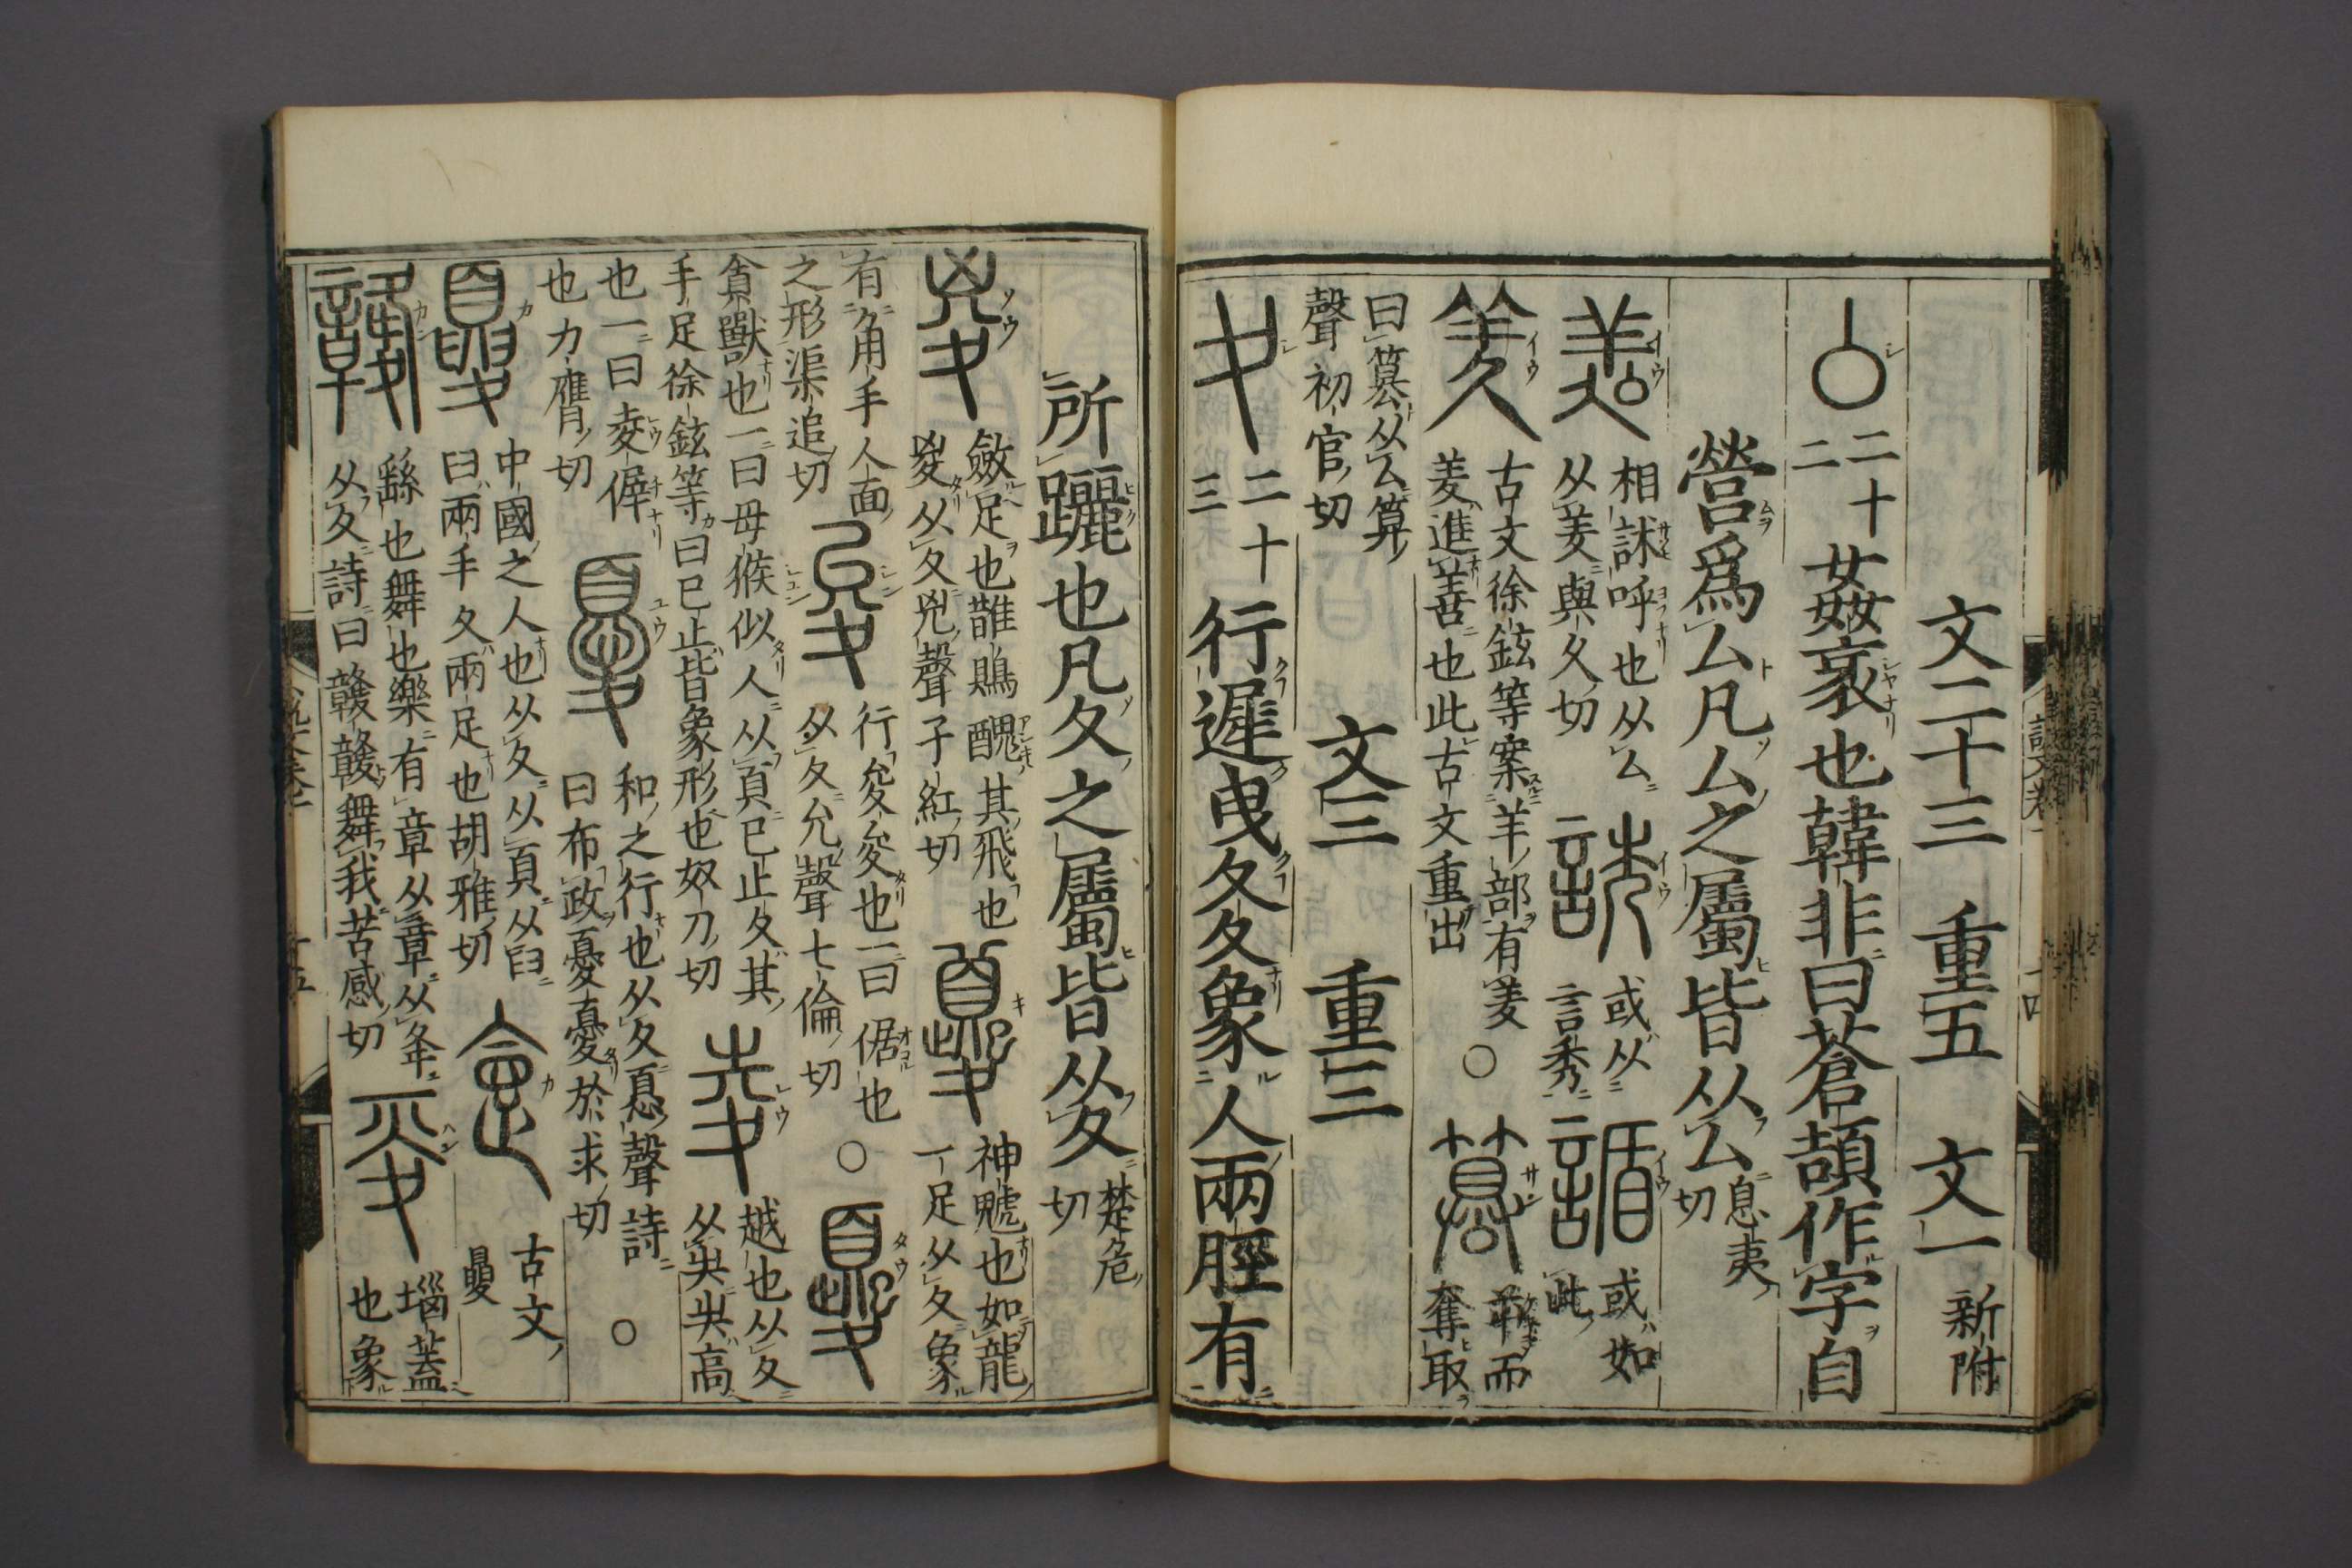 文二十三 重五 文一 新附
二十二 姦衺也韓非曰蒼頡作字自
營爲厶凡厶之屬皆从厶 息夷切
相訹呼也从厶从羑與久切 或从言秀 或如此
古文徐鉉等案羊部有羑羑進善也此古文重出 ○ 屰而奪取
曰篡从厶算聲初官切 文三 重三
二十三 行遲曳夊夊象人兩脛有
所躧也凡夊之屬皆从夊 楚危切
斂足也鵲鵙醜其飛也夋从夊兇聲子紅切 神魖也如龍一足从夊象
有角手人面之形渠追切 行夋夋也一曰倨也从夊允聲七倫切 ○
貪獸也一曰母猴似人从頁巳止夊其手足徐鉉等曰巳止皆象形也奴刀切 越也从夊从𡴆𡴆高
也一曰夌偋也力膺切 和之行也从夊㥑聲詩曰布政憂憂於求切 ○
中國之人也从夊从頁从𦥑𦥑兩手夊兩足也胡雅切 古文夓
繇也舞也樂有章从章从夅从夊詩曰竷竷舞我苦感切 匘蓋也象